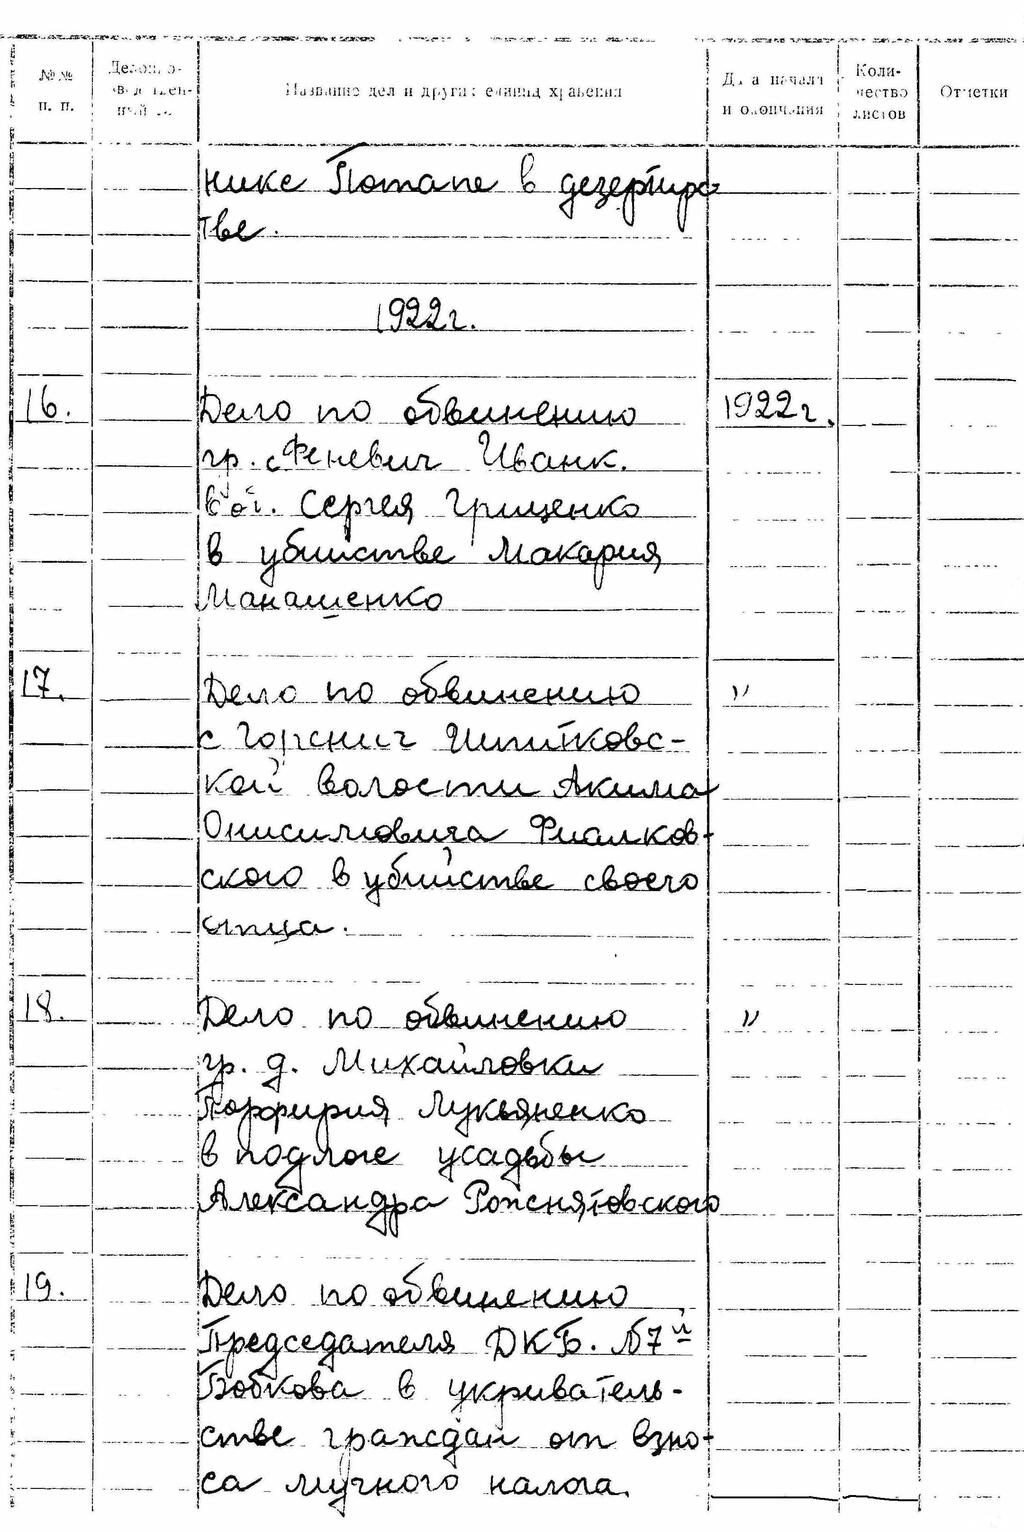 №№ п. п.
Название дел и других единиц хранения
Дата начала и окончания
Количество листов
Отметки
нике Потапе в дезертирс
тве.
1922г.
16. Дело по обвинению 1922г.
гр. с Феневич Иванк.
Сергея Грищенко
в убийстве Макария
Манашенко
17. Дело по обвинению "
с
кой волости Акима
Онисимовича Фиалков-
ского в убийстве своего
отца.
18. Дело по обвинению "
гр. д. Михайловки
Порфирия Лукьяненко
в подлоге усадьбы
Александра Рожснятовского
19. Дело по обвинению
Председателя ДКБ. №7й
Бобкова в укриватель-
стве граждан от взно-
са мучного налога.